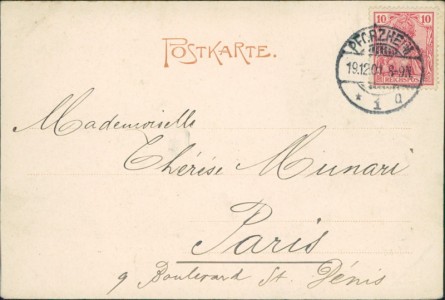 POSTKARTE.
10 10
REICHSPOST
PFORZHEIM
19.12.01. 8-9N.
* 1 q
Mademoiselle
Thérèse Munari
Paris
9 Boulevard St. Dénis